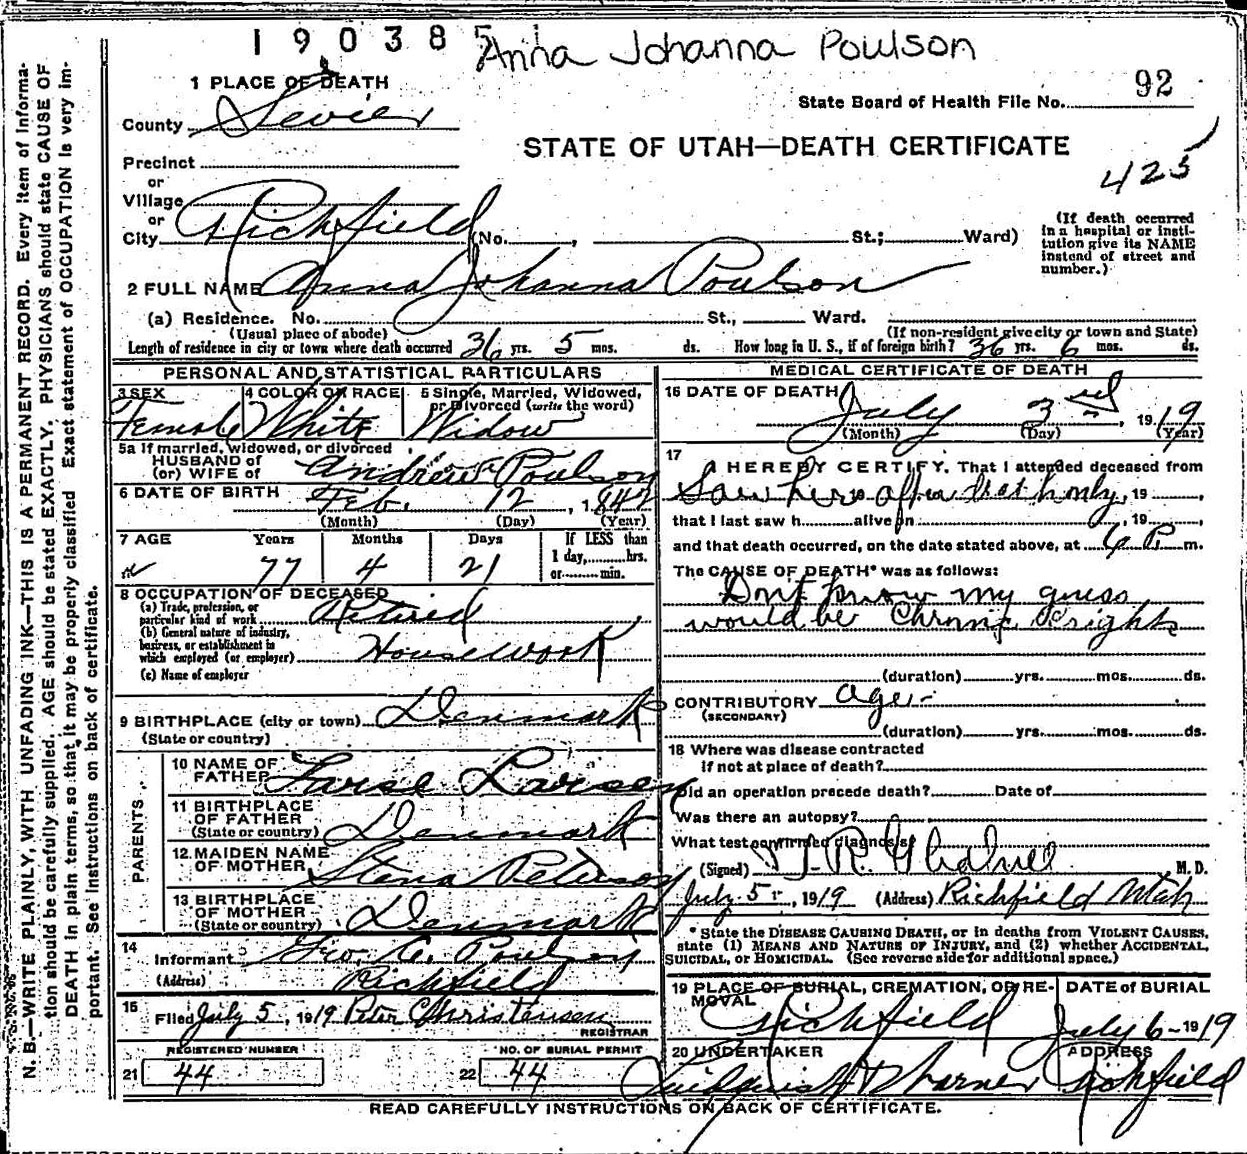 190385
Anna Johanna Poulson
1 PLACE OF DEATH
92
State Board of Health File No.
County Sevier
STATE OF UTAH—DEATH CERTIFICATE
Precinct
425
or
Village
or
City Richfield (No. , St.; Ward)
(If death occurred
in a hospital or insti-
tution give its NAME
instead of street and
number.)
2 FULL NAME Anna Johanna Poulson
(a) Residence. No. St., Ward.
(Usual place of abode) (If non-resident give city or town and State)
Length of residence in city or town where death occurred 36 yrs. 5 mos. ds. How long in U. S., if of foreign birth? 36 yrs. 6 mos. ds.
PERSONAL AND STATISTICAL PARTICULARS
3 SEX Female
4 COLOR OR RACE White
5 Single, Married, Widowed,
or Divorced (write the word)
Widow
5a If married, widowed, or divorced
HUSBAND of
(or) WIFE of Andrew Poulson
6 DATE OF BIRTH Feb. 12, 1842
(Month) (Day) (Year)
7 AGE Years Months Days If LESS than
1 day, hrs.
77 4 21 or min.
8 OCCUPATION OF DECEASED
(a) Trade, profession, or
particular kind of work Retired
(b) General nature of industry,
business, or establishment in
which employed (or employer) Housework
(c) Name of employer
9 BIRTHPLACE (city or town) Denmark
(State or country)
PARENTS
10 NAME OF
FATHER Larse Larsen
11 BIRTHPLACE
OF FATHER
(State or country) Denmark
12 MAIDEN NAME
OF MOTHER Stena Peterson
13 BIRTHPLACE
OF MOTHER
(State or country) Denmark
14
Informant Geo. C. Poulson
(Address) Richfield
15
Filed July 5, 1919 Peter Christensen
REGISTRAR
REGISTERED NUMBER NO. OF BURIAL PERMIT
21 44 22 44
MEDICAL CERTIFICATE OF DEATH
16 DATE OF DEATH
July 3rd, 1919
(Month) (Day) (Year)
17
I HEREBY CERTIFY, That I attended deceased from
Saw her after death only, 19 ,
that I last saw h alive on , 19 ,
and that death occurred, on the date stated above, at 6 P. m.
The CAUSE OF DEATH* was as follows:
Dont know my guess
would be Chronic Brights
(duration) yrs. mos. ds.
CONTRIBUTORY age
(SECONDARY)
(duration) yrs. mos. ds.
18 Where was disease contracted
if not at place of death?
Did an operation precede death? Date of
Was there an autopsy?
What test confirmed diagnosis?
(Signed) M. D.
July 5, 1919 (Address) Richfield Utah
*State the DISEASE CAUSING DEATH, or in deaths from VIOLENT CAUSES,
state (1) MEANS AND NATURE OF INJURY, and (2) whether ACCIDENTAL,
SUICIDAL, or HOMICIDAL. (See reverse side for additional space.)
19 PLACE OF BURIAL, CREMATION, OR RE-
MOVAL
DATE of BURIAL
Richfield July 6-1919
20 UNDERTAKER ADDRESS
Warner Richfield
READ CAREFULLY INSTRUCTIONS ON BACK OF CERTIFICATE.
N. B.—WRITE PLAINLY, WITH UNFADING INK—THIS IS A PERMANENT RECORD. Every item of informa-
tion should be carefully supplied. AGE should be stated EXACTLY. PHYSICIANS should state CAUSE OF
DEATH in plain terms, so that it may be properly classified. Exact statement of OCCUPATION is very im-
portant. See instructions on back of certificate.